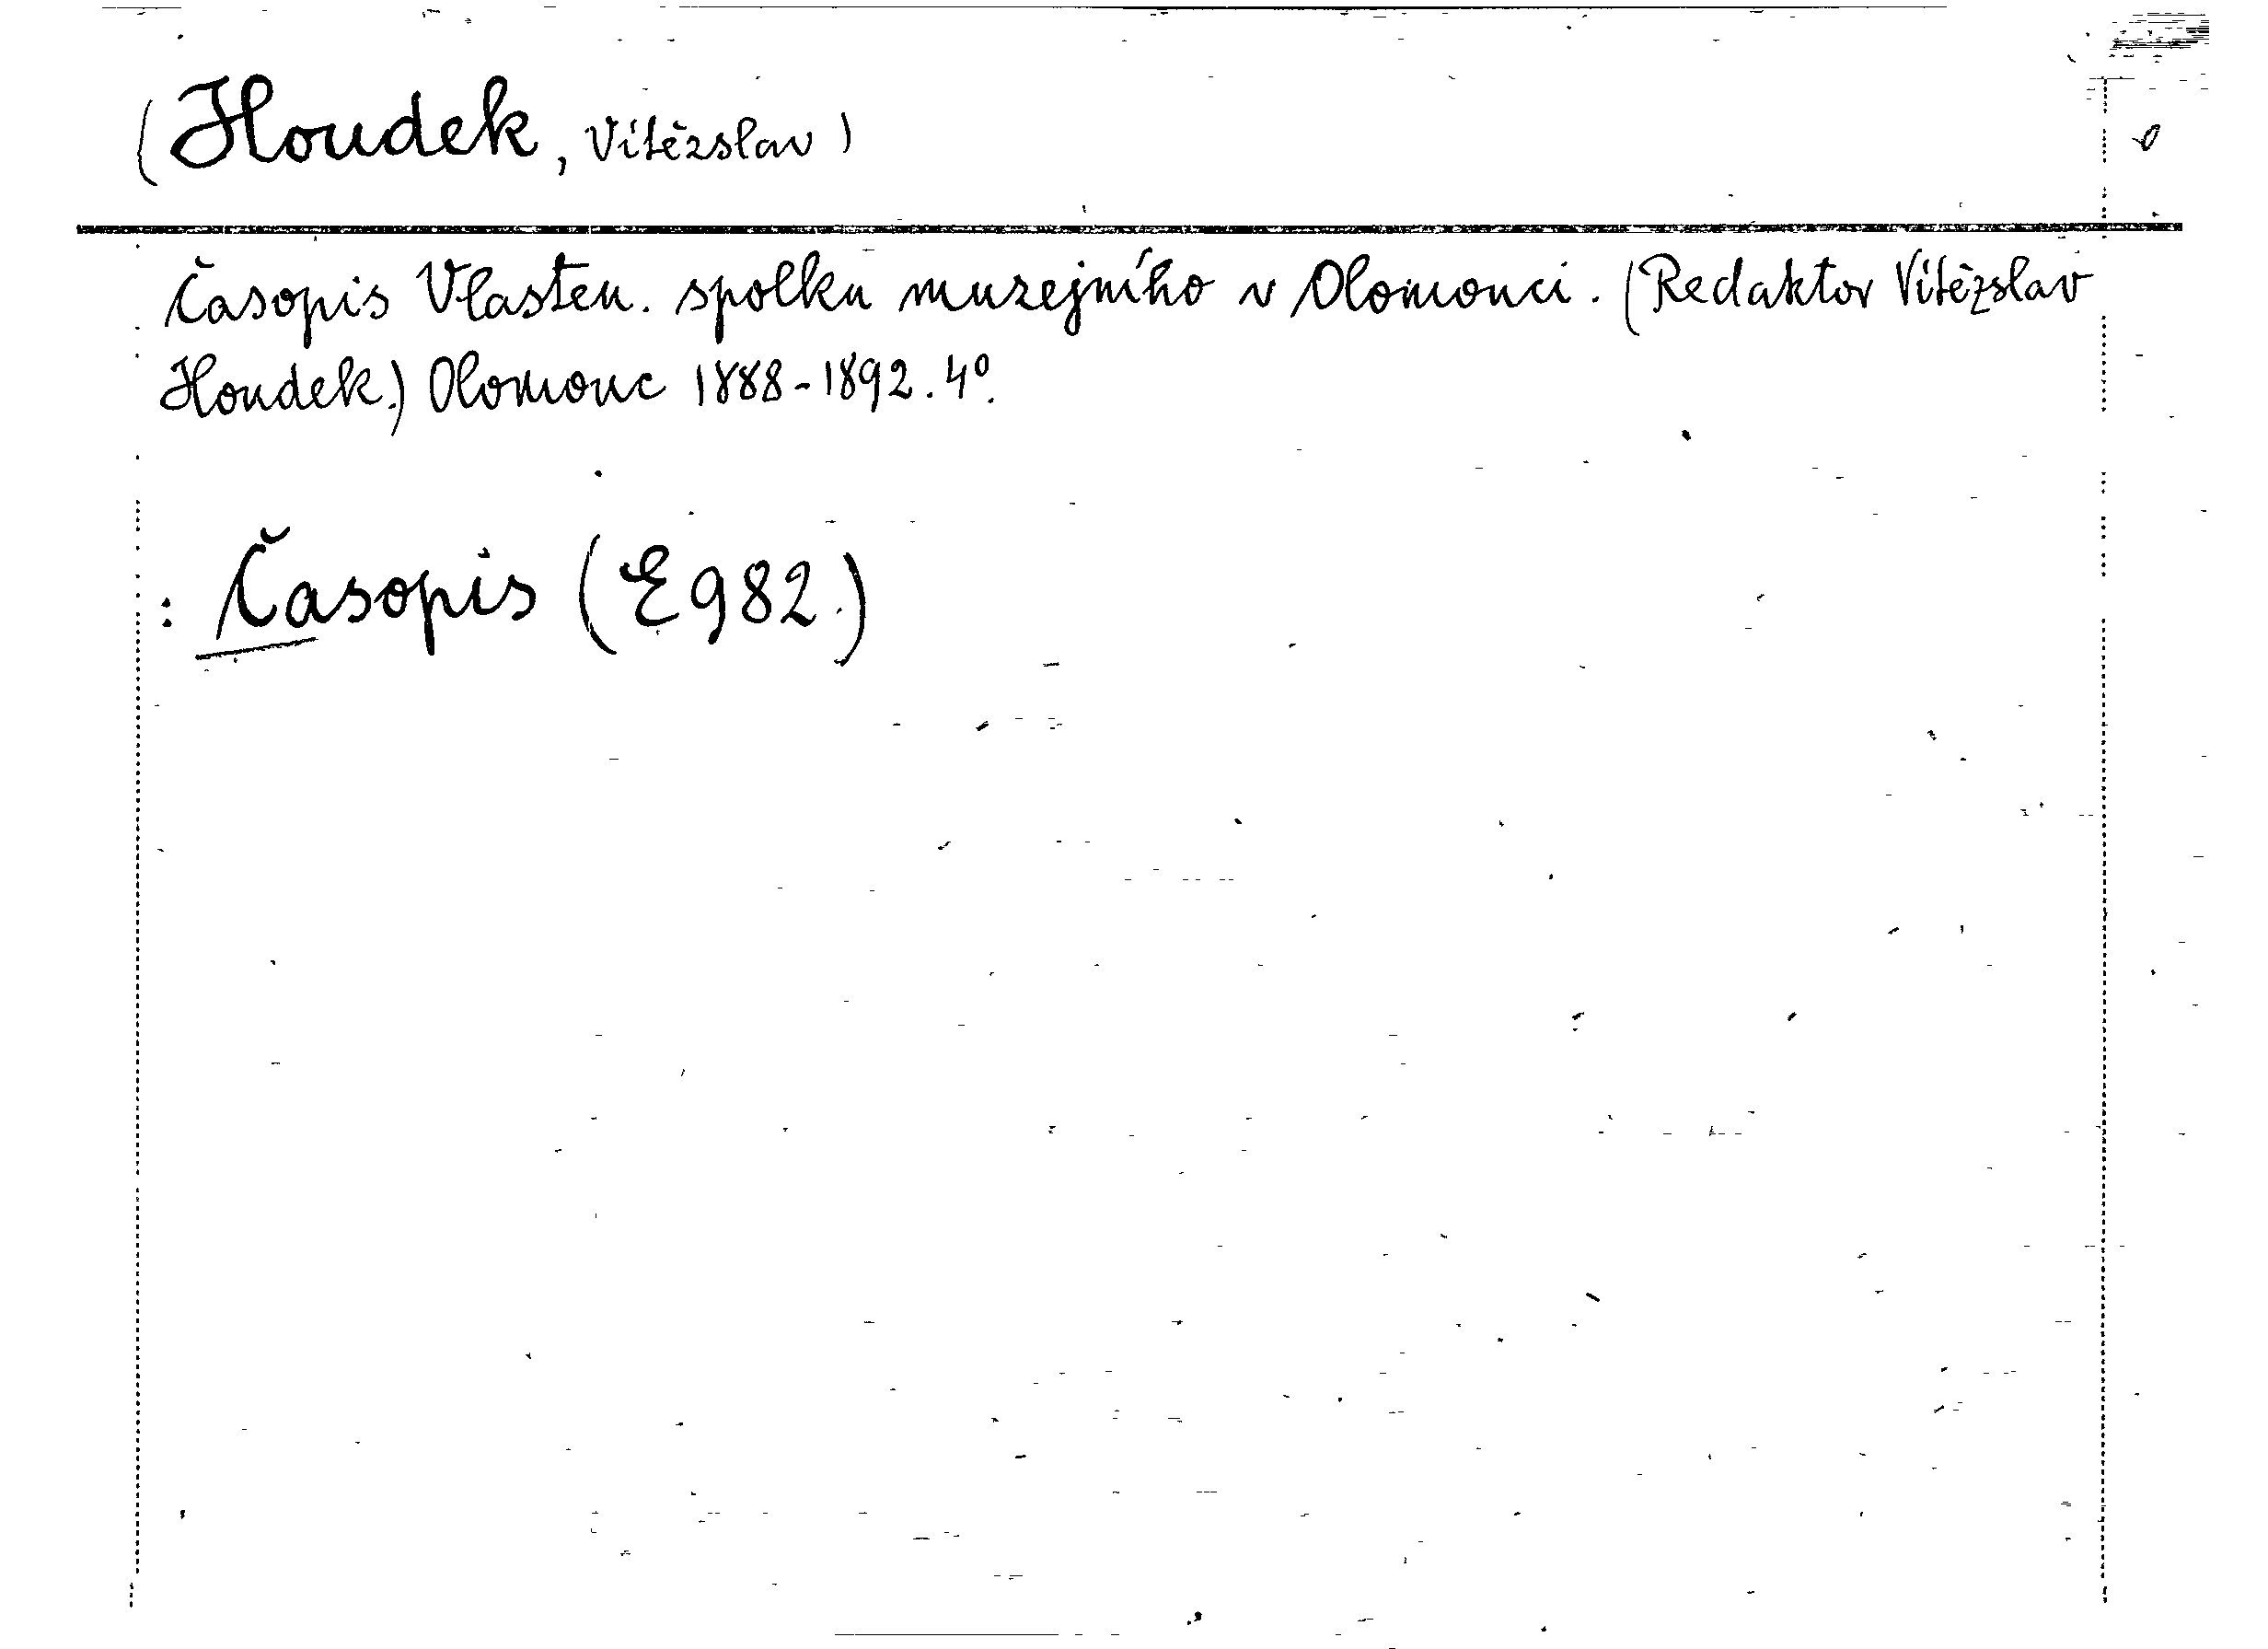 (Houdek, Vítězslav)
Časopis Vlasten. spolku muzejního v Olomouci. (Redaktor Vítězslav
Houdek.) Olomouc 1888-1892. 4°.
: Časopis (E982.)